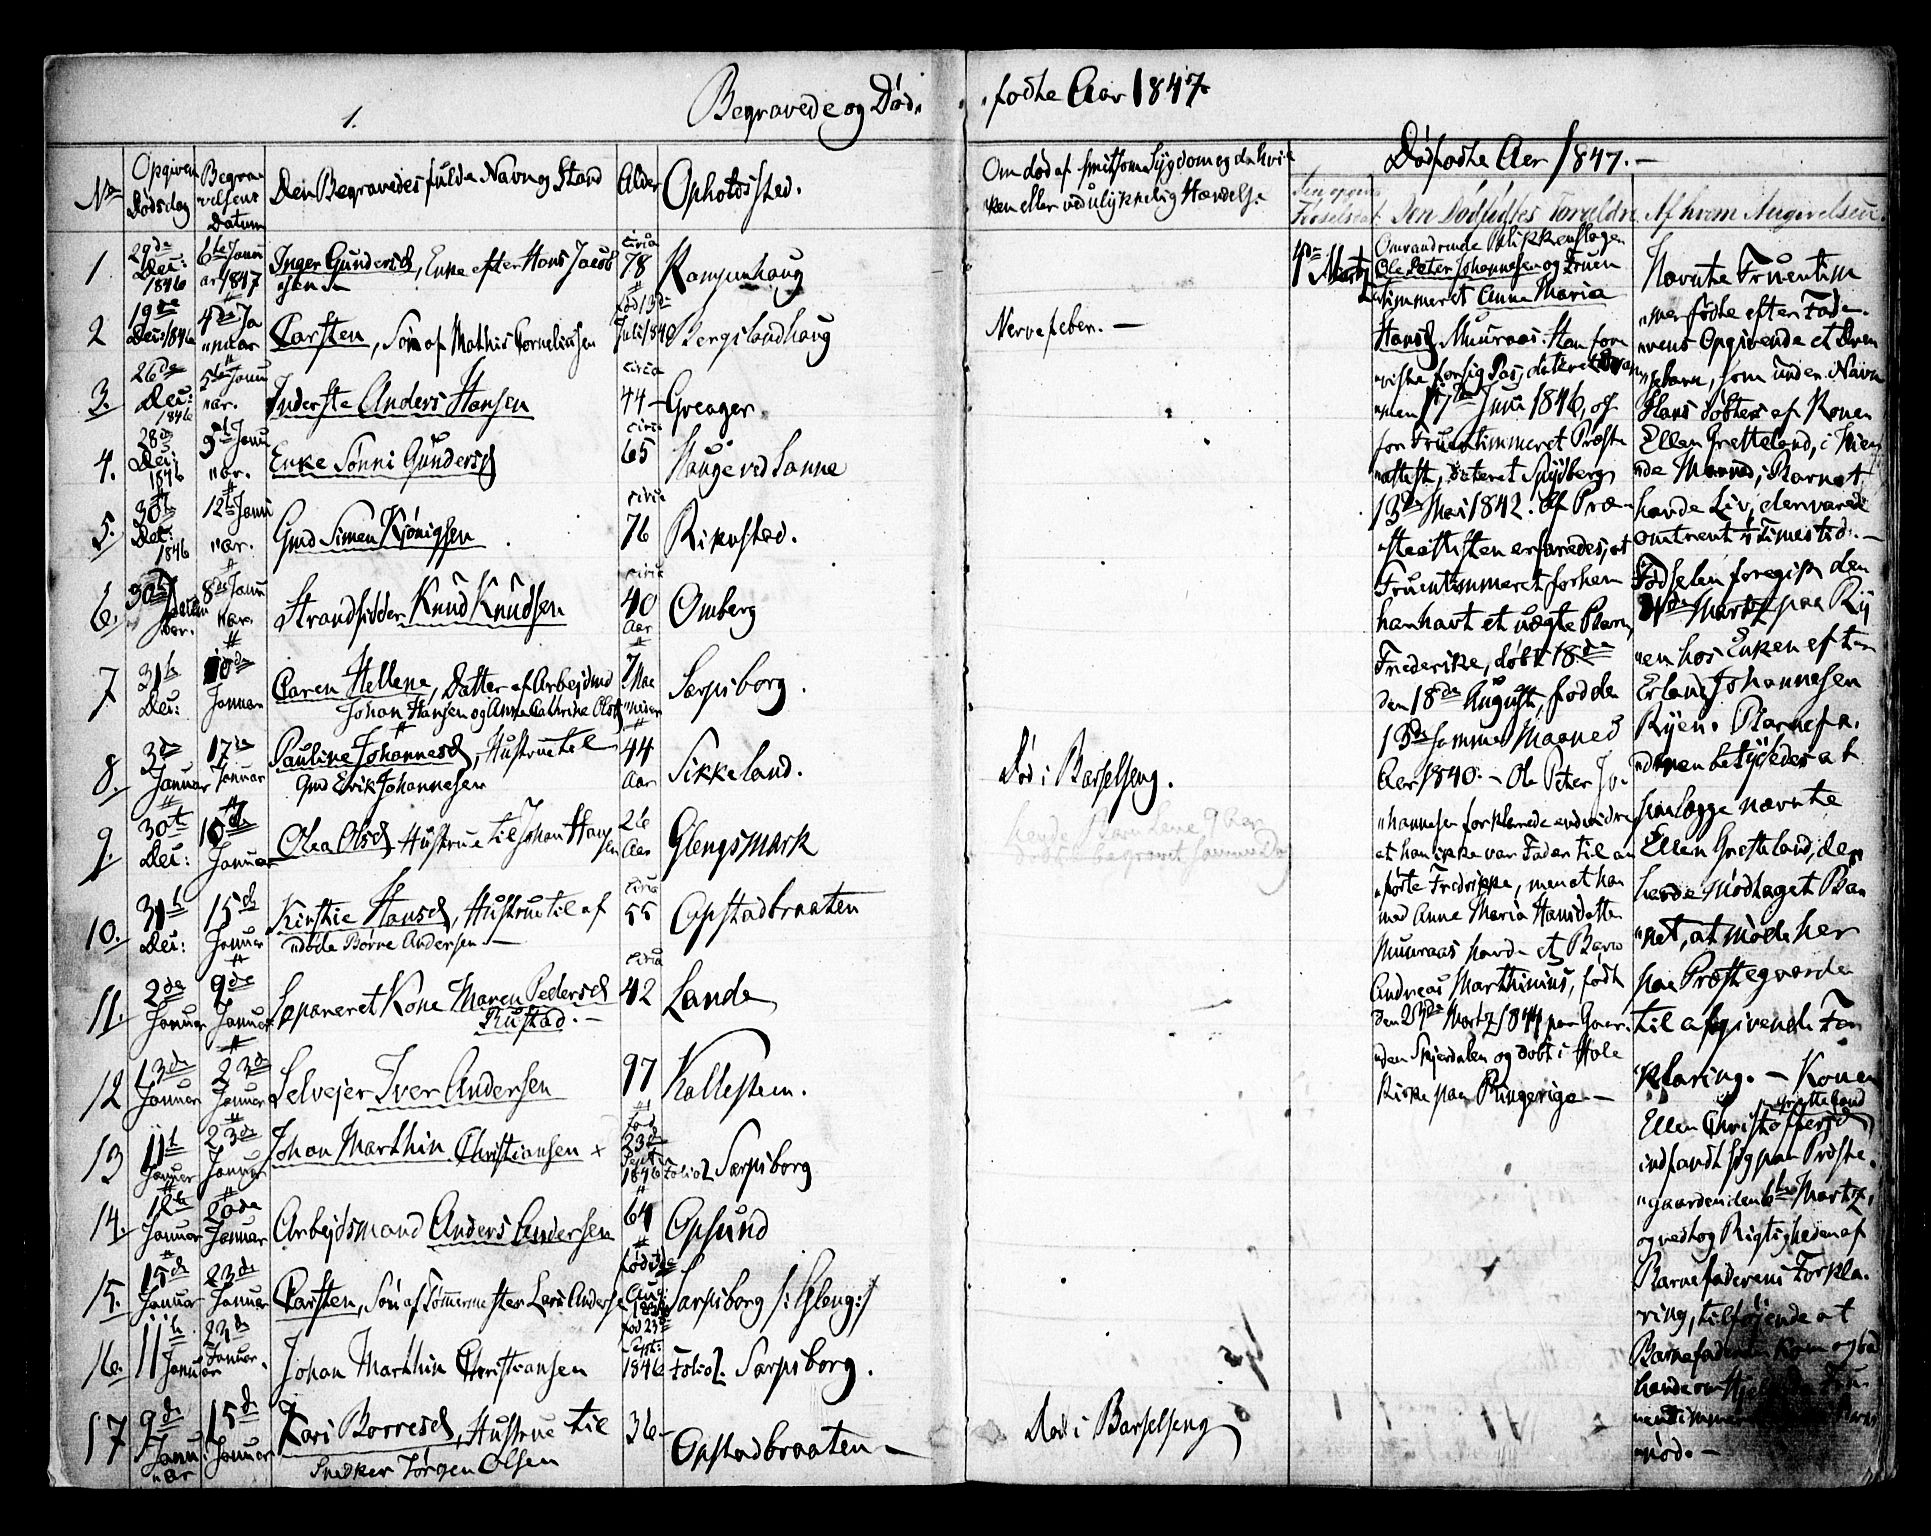 1.
Begravede og Død-
-fødte Aar 1847.
No
Opgiven Dødsdag
Begravelsens Datum
Den Begravedes fulde Navn og Stand
Alder
Opholdssted.
Om død af smitsom Sygdom og da hvil-
ken eller ved ulykkelig Hændelse
Dødfødte Aar 1847. —
Den Dødfødtes Forældre
Af hvem Angivelsen
1 29de Dec: 1846 6te Januar 1847 Inger Gundersd, Enke efter Hans Jacob
sen — circa 78 Kampenhaug
2 19de Dec: 1846 4de Januar Carsten, Søn af Mathis Corneliussen fød 13de Juli 1840 Bergslandhaug Nervefeber. —
3. 26de Dec: 1846 5te Januar. Inderste Anders Hansen circa 44 — Greager.
4. 28de Dec: 1846 5te Januar. Enke Sønni Gundersd circa 65 Hauge ved Sanne
5. 30te Dec: 1846 12te Januar. Gmd Simen Kjønigsen circa 76 Rikustad.
6. 30te December. 8de Januar. Strandsidder Knud Knudsen circa 40 Aar Omberg
7 31te Dec: Januar Caren Hellene, Datter af Arbejdsmd
Johan Hansen og Anne Cathrine Olsd 7 Maaneder Sarpsborg.
8. 3de Januar 17de Januar Pauline Johannesd, Hustrue til
Gmd Erik Johannesen 44 Aar Sikkeland. Død i Barselseng.
9. 30te Dec: 10de Januar Olea Olsd Hustrue til Johan Hansen 26 Aar Glengsmark
10. 31te Dec: 15de Januar Kirstie Hansd, Hustrue til af
døde Børre Andersen. — circa 55 Opstadbraaten
11. 2de Januar 9de Januar Separeret Kone Maren Pedersd
Rustad. — circa 42 Lande
12 13de Januar 23de Januar Selvejer Iver Andersen 97 Kallestem.
13 11te Januar 23de Januar Johan Marthin Christiansen × fød 23de Sept. 1846 Folio 2. Sarpsborg
14. 12te Januar 20de Januar Arbejdsmand Anders Andersen 64 Opsund
15. 15de Januar 23de Januar Carsten, Søn af Tømmermester Lars Andersen Sarpsborg /: Gleng :/
16. 11te Januar 23de Januar. Johan Marthin Christiansen fød 23de Sept: 1846 Folio 2. Sarpsborg.
17 9de Januar 15de Januar Kari Børresd, Hustrue til
Snedker Jørgen Olsen 36 — Opstadbraaten — Død i Barselseng
4de Martz
Omvandrende Blikkenslager
Ole Peter Johannesen og Fruen
timmeret Anne Maria
Hansd Muuraas. Han fore
viste for sig Pas, dateret
17de Juni 1846, og
for Fruentimmeret Præste
attest, dateret Spydberg
13de Mai 1842. Af Præ-
steattesten erfaredes, at
Fruentimmeret forhen
har havt et uægte Barn,
Frederikke, døbt
den 18de August, fød den
13de samme Maaned
Aar 1840. — Ole Peter Jo-
hannesen forklarede endvidere
at han ikke var Fader til an
førte Fredrikke, men at han
med Anne Maria Hansdatter
Muuraas havde et Barn
Andreas Marthinius, født
den Martz 1844 paa Gaar-
den Skjerdalen og døbt i Hole
Kirke paa Ringerige. —
Nævnte Fruentim
mer fødte efter Fade-
rens Opgivende et Dren
gebarn, som under Navn
Hans døbtes af Konen
Ellen Gretteland, i hien
havde Liv, der varede
omtrent Times tid. —
Fødselen foregik den
4de Martz paa Ry
en hos Enken efter
Erland Johannesen
Ryen. Barnefa-
deren betydedes at
paalægge nævnte
Ellen Gretteland, der
havde modtaget Bar
net, at møde her
paa Præstegaarden
til afgivende For
klaring. — Konen
Ellen Christoffersd Gretteland
indfandt sig paa Præste-
gaarden den 6te Martz,
og vedtog Rigtigheden af
Barnefaderens Forkla-
ring, tilføjende at
Barnefaderen kom og bad
hende om Hjelp da Fru-
entimmeret
nød. —